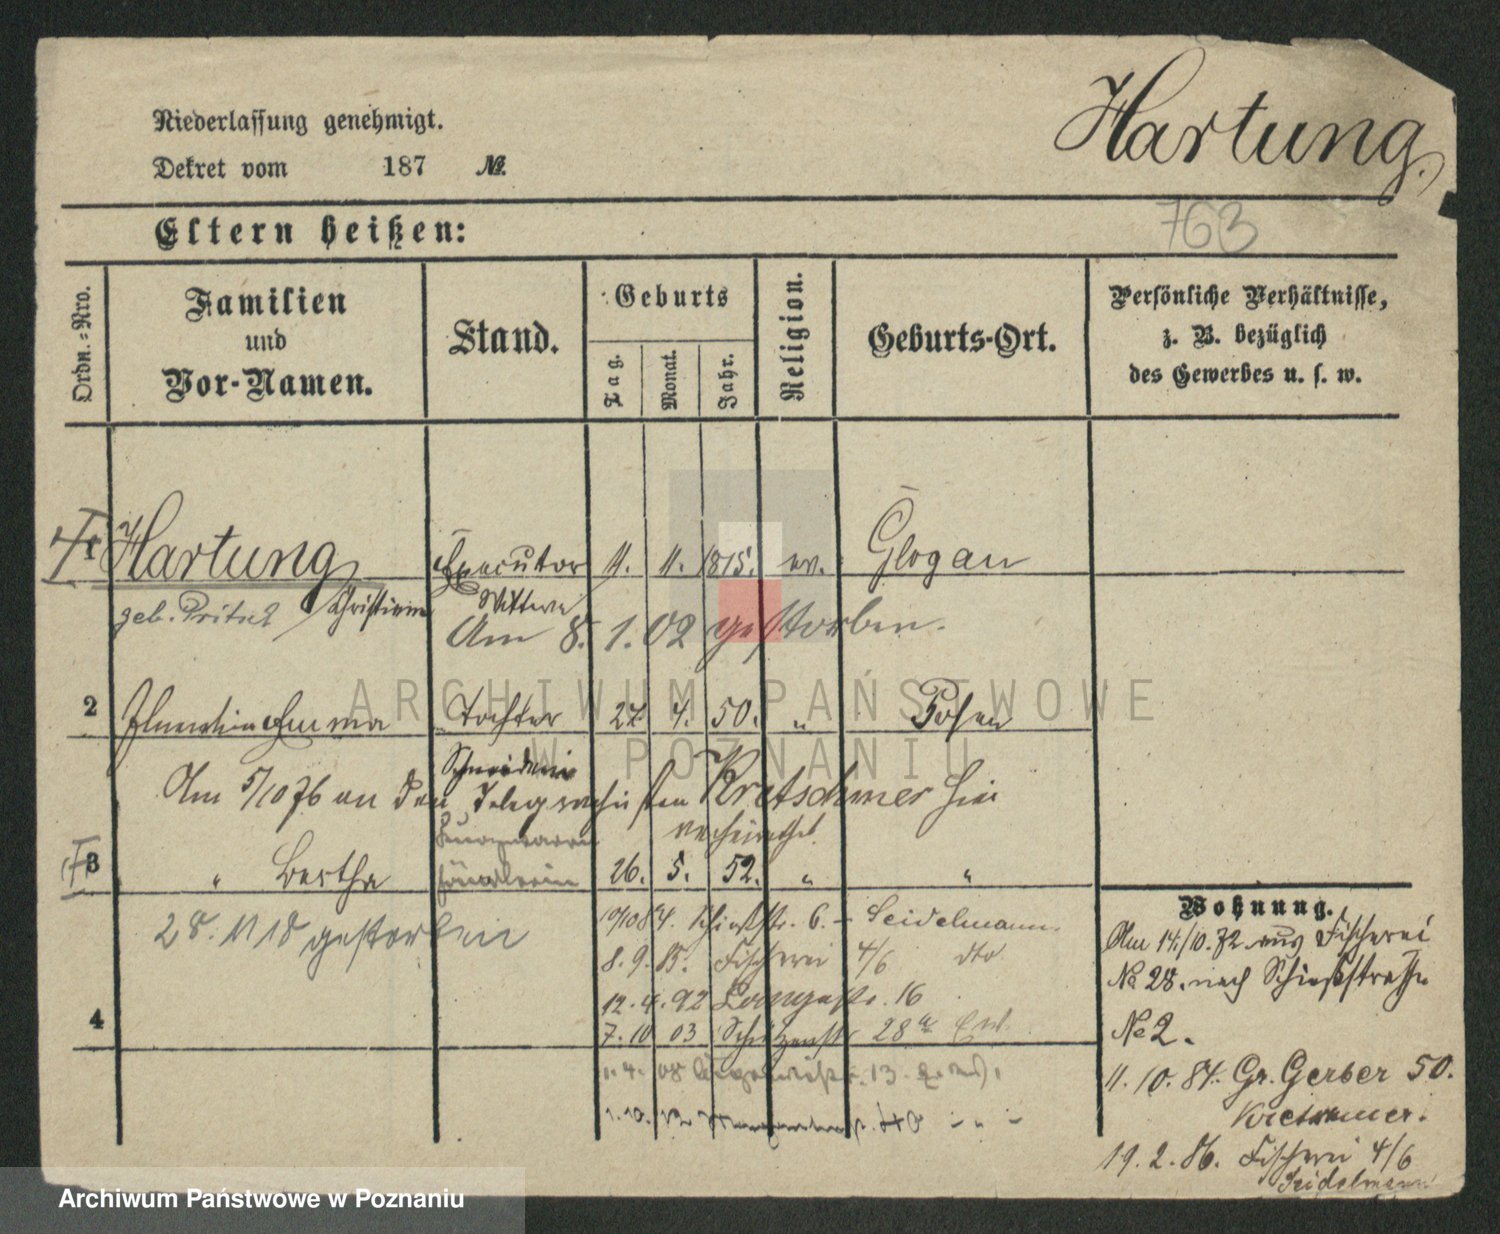 Niederlassung genehmigt.
Dekret vom 187 №.
Hartung.
763
Eltern heißen:
Ordn.-Nro.
Familien
und
Vor-Namen.
Stand.
Geburts
Tag.
Monat.
Jahr.
Religion.
Geburts-Ort.
Persönliche Verhältnisse,
z. B. bezüglich
des Gewerbes u. s. w.
Hartung Executor 11. 11. 1815. ev. Glogau
geb. Christiane Wittwe
Am 8. 1. 02 gestorben.
2 Emma Tochter 27. 4. 50. " Posen
Am 5/10 76 an den Telegraphisten Kretschmer hier
verheirathet.
3 " Bertha 26. 5. 52. " "
28. 11 18 gestorben
10/10 84. Schießstr. 6. – Seidelmann.
8. 9. 85. Fischerei 4/6 dto
12. 4. 92 Langestr. 16
4
7. 10 03 Schützenstr 28a
1. 4. 08 13.
1. 10. 12 40 – " –
Wohnung.
Am 14./10. 72 aus Fischerei
№ 28. nach Schießstraße
№ 2.
11. 10. 84. Gr. Gerber 50.
Kretschmer.
19. 2. 86. Fischerei 4/6
Seidelmann
ARCHIWUM PAŃSTWOWE
W POZNANIU
Archiwum Państwowe w Poznaniu